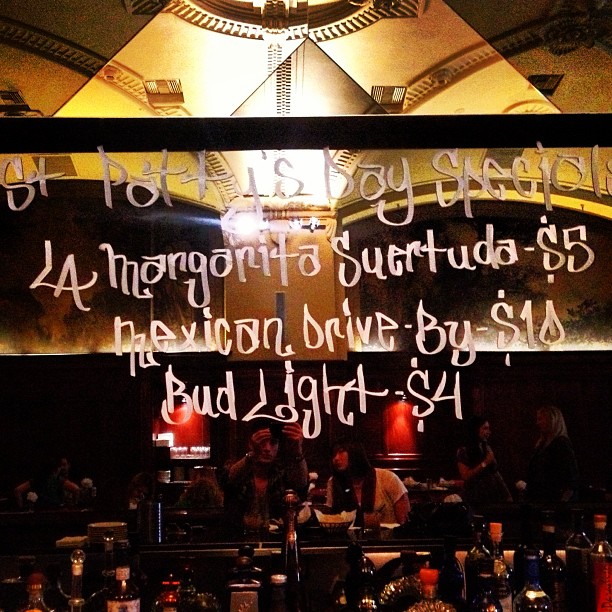 St Patty's Day Specials
LA Margarita Suertuda-$5
Mexican Drive-By-$10
Bud Light-$4